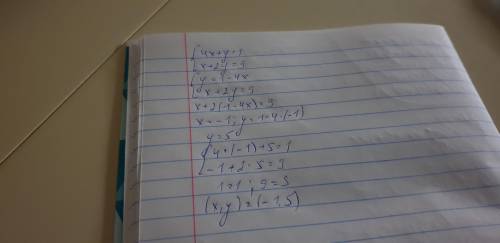 {4x+y=1
{x+2y=9
{y=1-4x
{x+2y=9
x+2(1-4x)=9
x=-1; y=1-4·(-1)
y=5
{4·(-1)+5=1
{-1+2·5=9
1=1; 9=9
(x,y)=(-1,5)